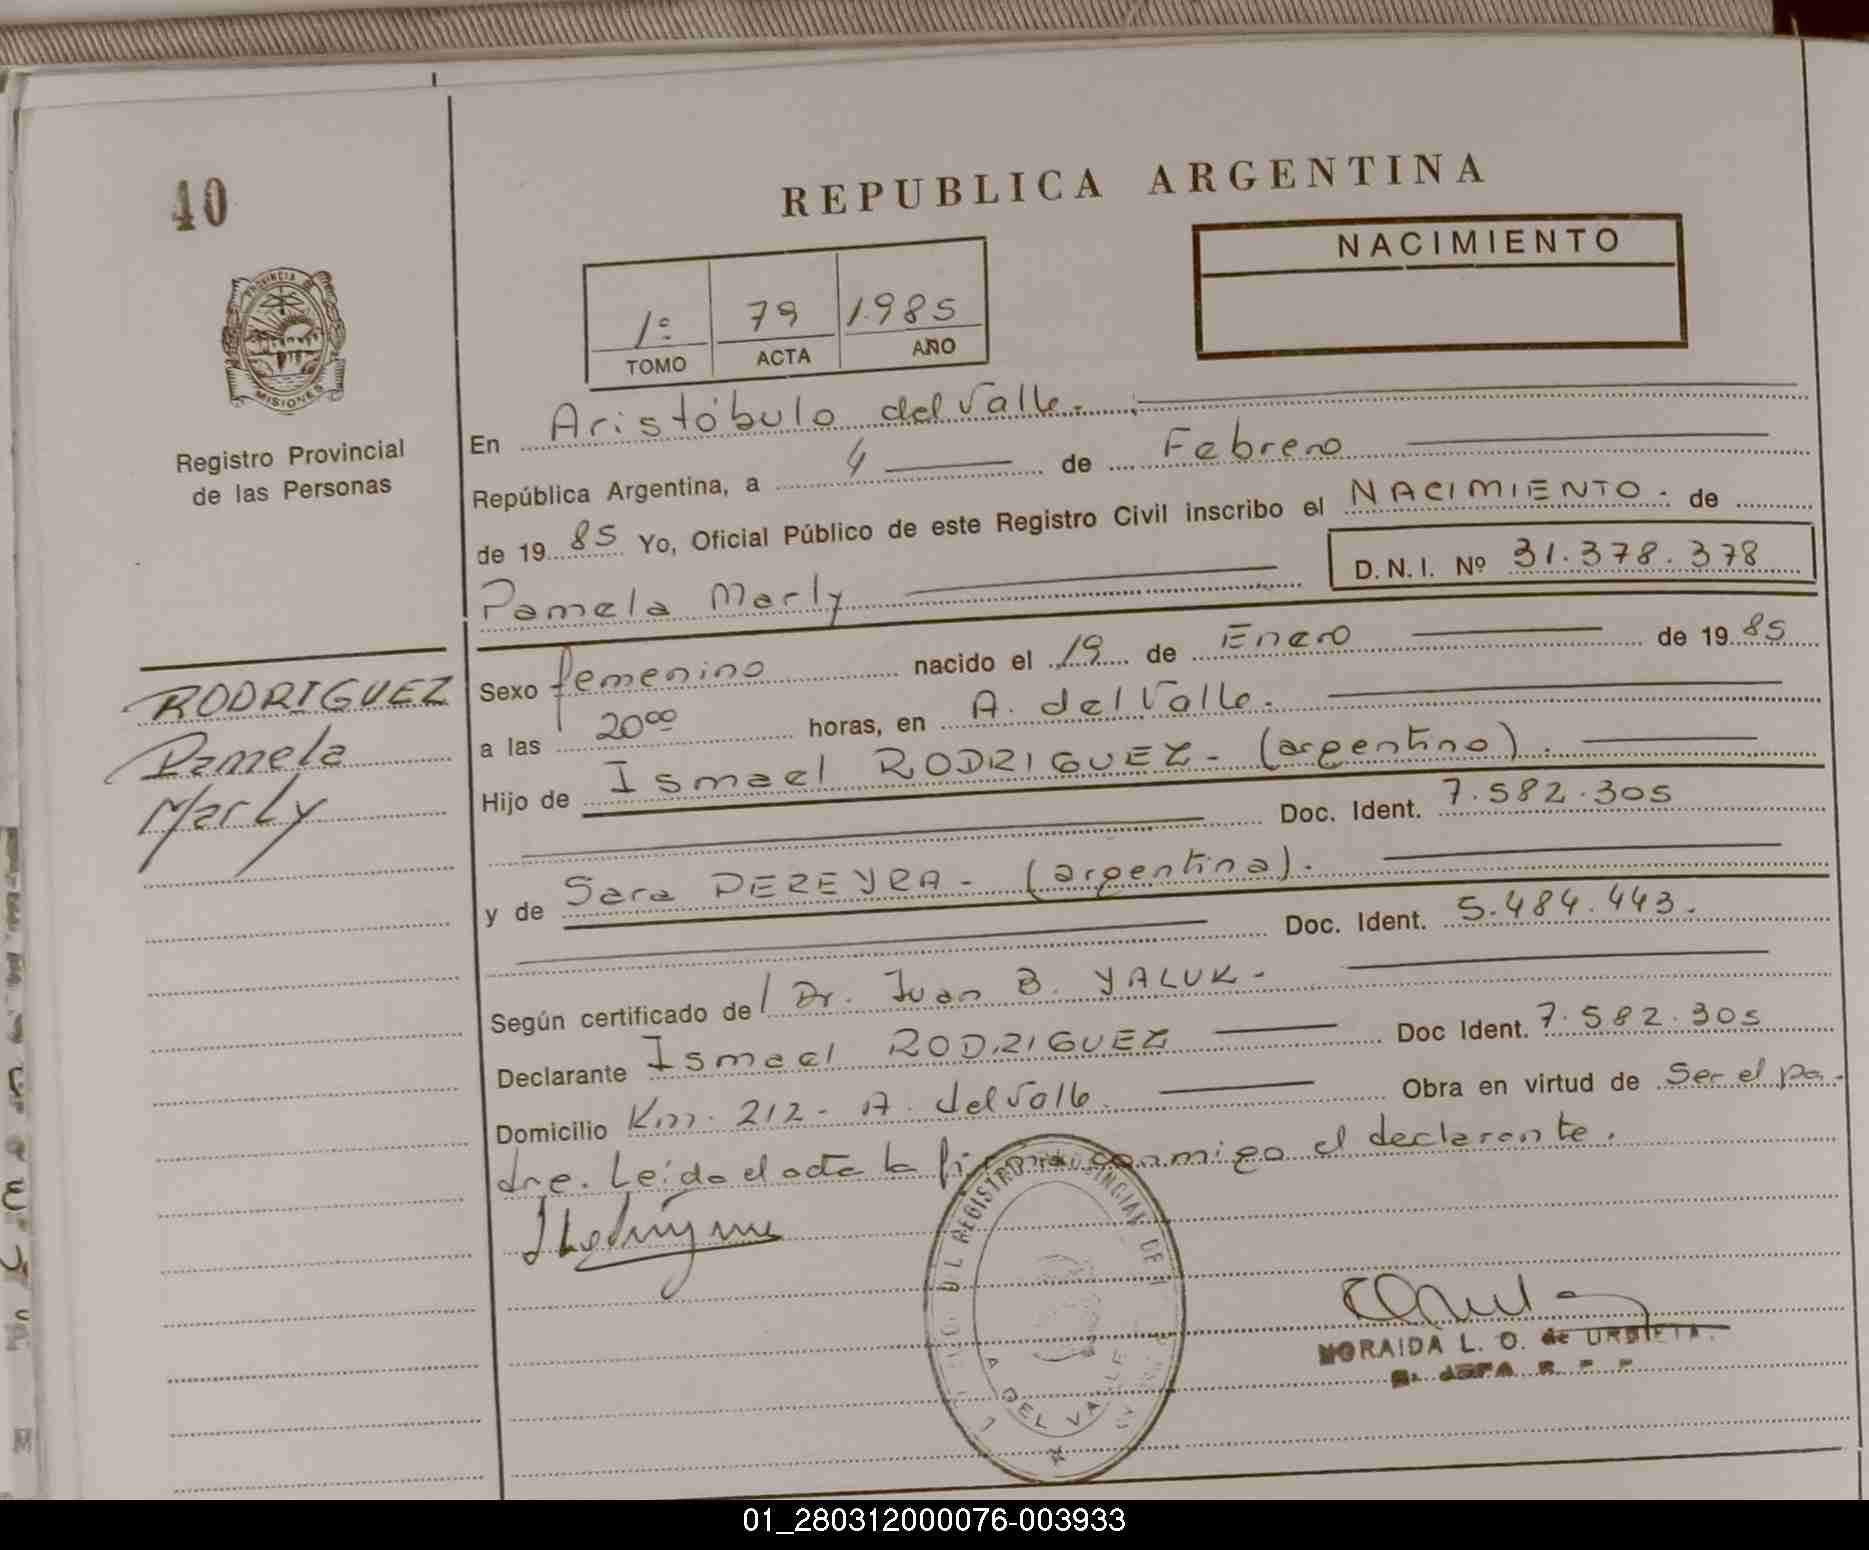 40
REPUBLICA ARGENTINA
NACIMIENTO
1º 79 1.985
TOMO ACTA AÑO
PROVINCIA
MISIONES
Registro Provincial
de las Personas
En Aristóbulo del Valle.
República Argentina, a 4 de Febrero
de 19 85 Yo, Oficial Público de este Registro Civil inscribo el NACIMIENTO. de
Pamela Marly D.N.I. Nº 31.378.378
RODRIGUEZ
Pamela
Marly
Sexo femenino nacido el 19 de Enero de 19 85
a las 20⁰⁰ horas, en A. del Valle.
Hijo de Ismael RODRIGUEZ - (argentino).
Doc. Ident. 7.582.305
y de Sara PEREYRA - (argentina).
Doc. Ident. 5.484.443.
Según certificado de l Dr. Juan B. YALUK -
Declarante Ismael RODRIGUEZ Doc Ident. 7.582.305
Domicilio Km. 212 - A. del Valle. Obra en virtud de Ser el pa-
dre. Leída el acta la firma conmigo el declarante.
REGISTRO PROVINCIAL DE
A. DEL VALLE
NORAIDA L. O. de URBIETA.
01_280312000076-003933